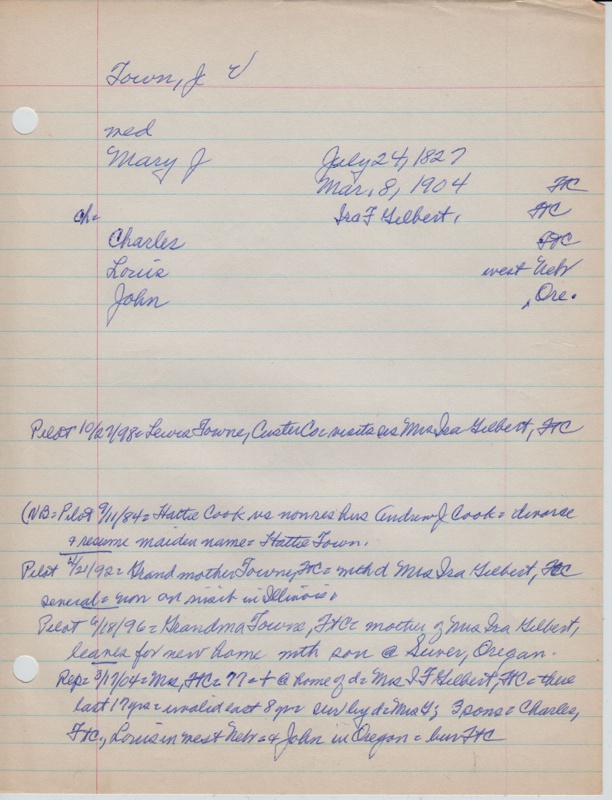 Town, J V
med
Mary J July 24, 1827
Mar, 8, 1904 FTC
ch= Ira F Gilbert, FTC
Charles FTC
Louis west Nebr
John , Ore.
Pilot 10/27/98= Lewis Towne, Custer Co= visits sis Mrs Ira Gilbert, FTC
(NB= Pilot 9/11/84= Hattie Cook vs nonres hus Andrew J Cook= divorce
& resume maiden name= Hattie Town.
Pilot 4/21/92= Grandmother Towne, FTC= mth d Mrs Ira Gilbert, FTC
several= now on visit in Illinois.
Pilot 6/18/96= Grandma Towne, FTC= mother of Mrs Ira Gilbert,
leaves for new home mth son @ Suver, Oregon.
Rep= 3/17/04= Mrs, FTC= 77= + @ home of d= Mrs I F Gilbert, FTC= there
last 17 yrs= invalid last 8 yrs= surv by d= Mrs G; 3 sons= Charles,
FTC, Louis in west Nebr= & John in Oregon= bur FTC